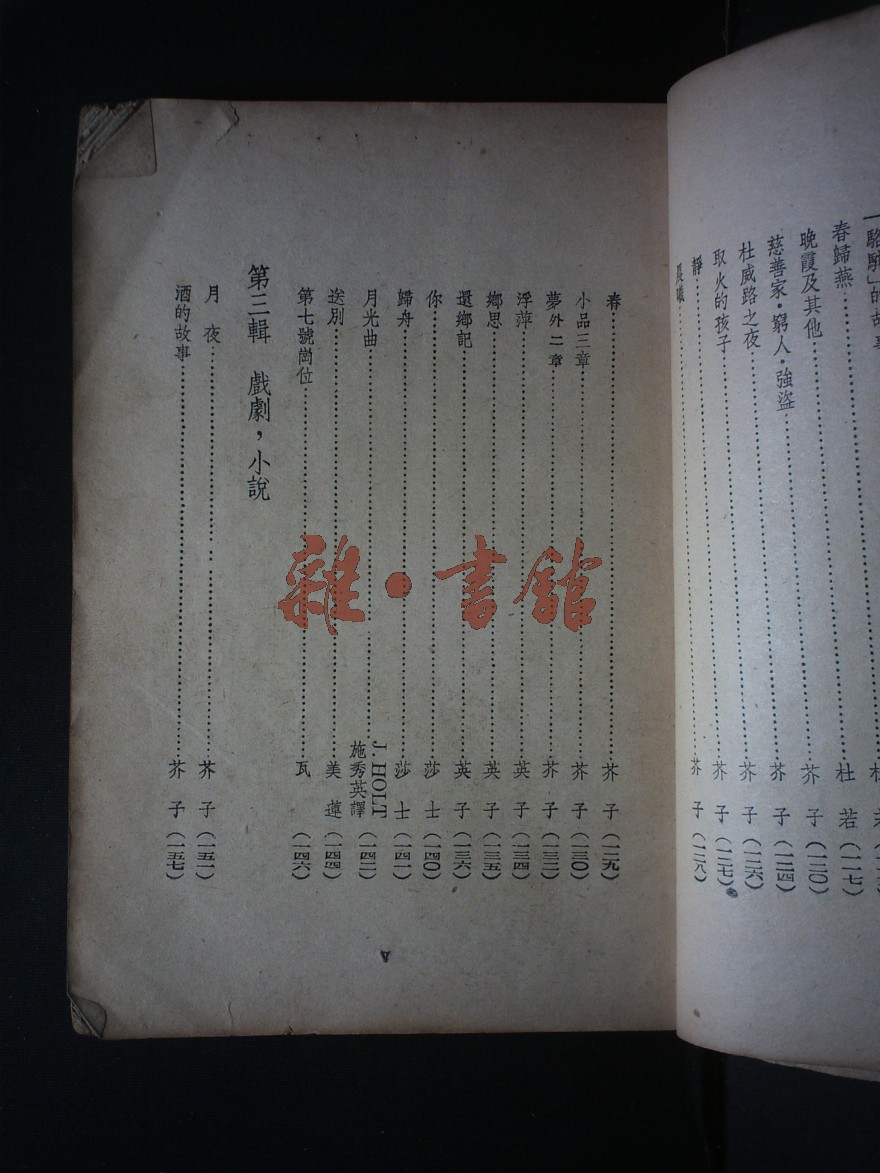 「駱駝」的故事
春歸燕 杜 若 (一一七)
晚霞及其他 芥 子 (一二〇)
慈善家・窮人・強盜 芥 子 (一二四)
杜威路之夜 芥 子 (一二六)
取火的孩子 芥 子 (一二七)
靜 芥 子 (一二八)
春 芥 子 (一二九)
小品三章 芥 子 (一三〇)
夢外二章 芥 子 (一三二)
浮萍 英 子 (一三四)
鄉思 英 子 (一三五)
還鄉記 英 子 (一三六)
你 莎 士 (一四〇)
歸舟 莎 士 (一四一)
月光曲 J. HOLT 施秀英譯 (一四二)
送別 美 導 (一四四)
第七號崗位 瓦 (一四六)
第三輯 戲劇，小說
月 夜 芥 子 (一五一)
酒的故事 芥 子 (一五七)
V
雜・書館